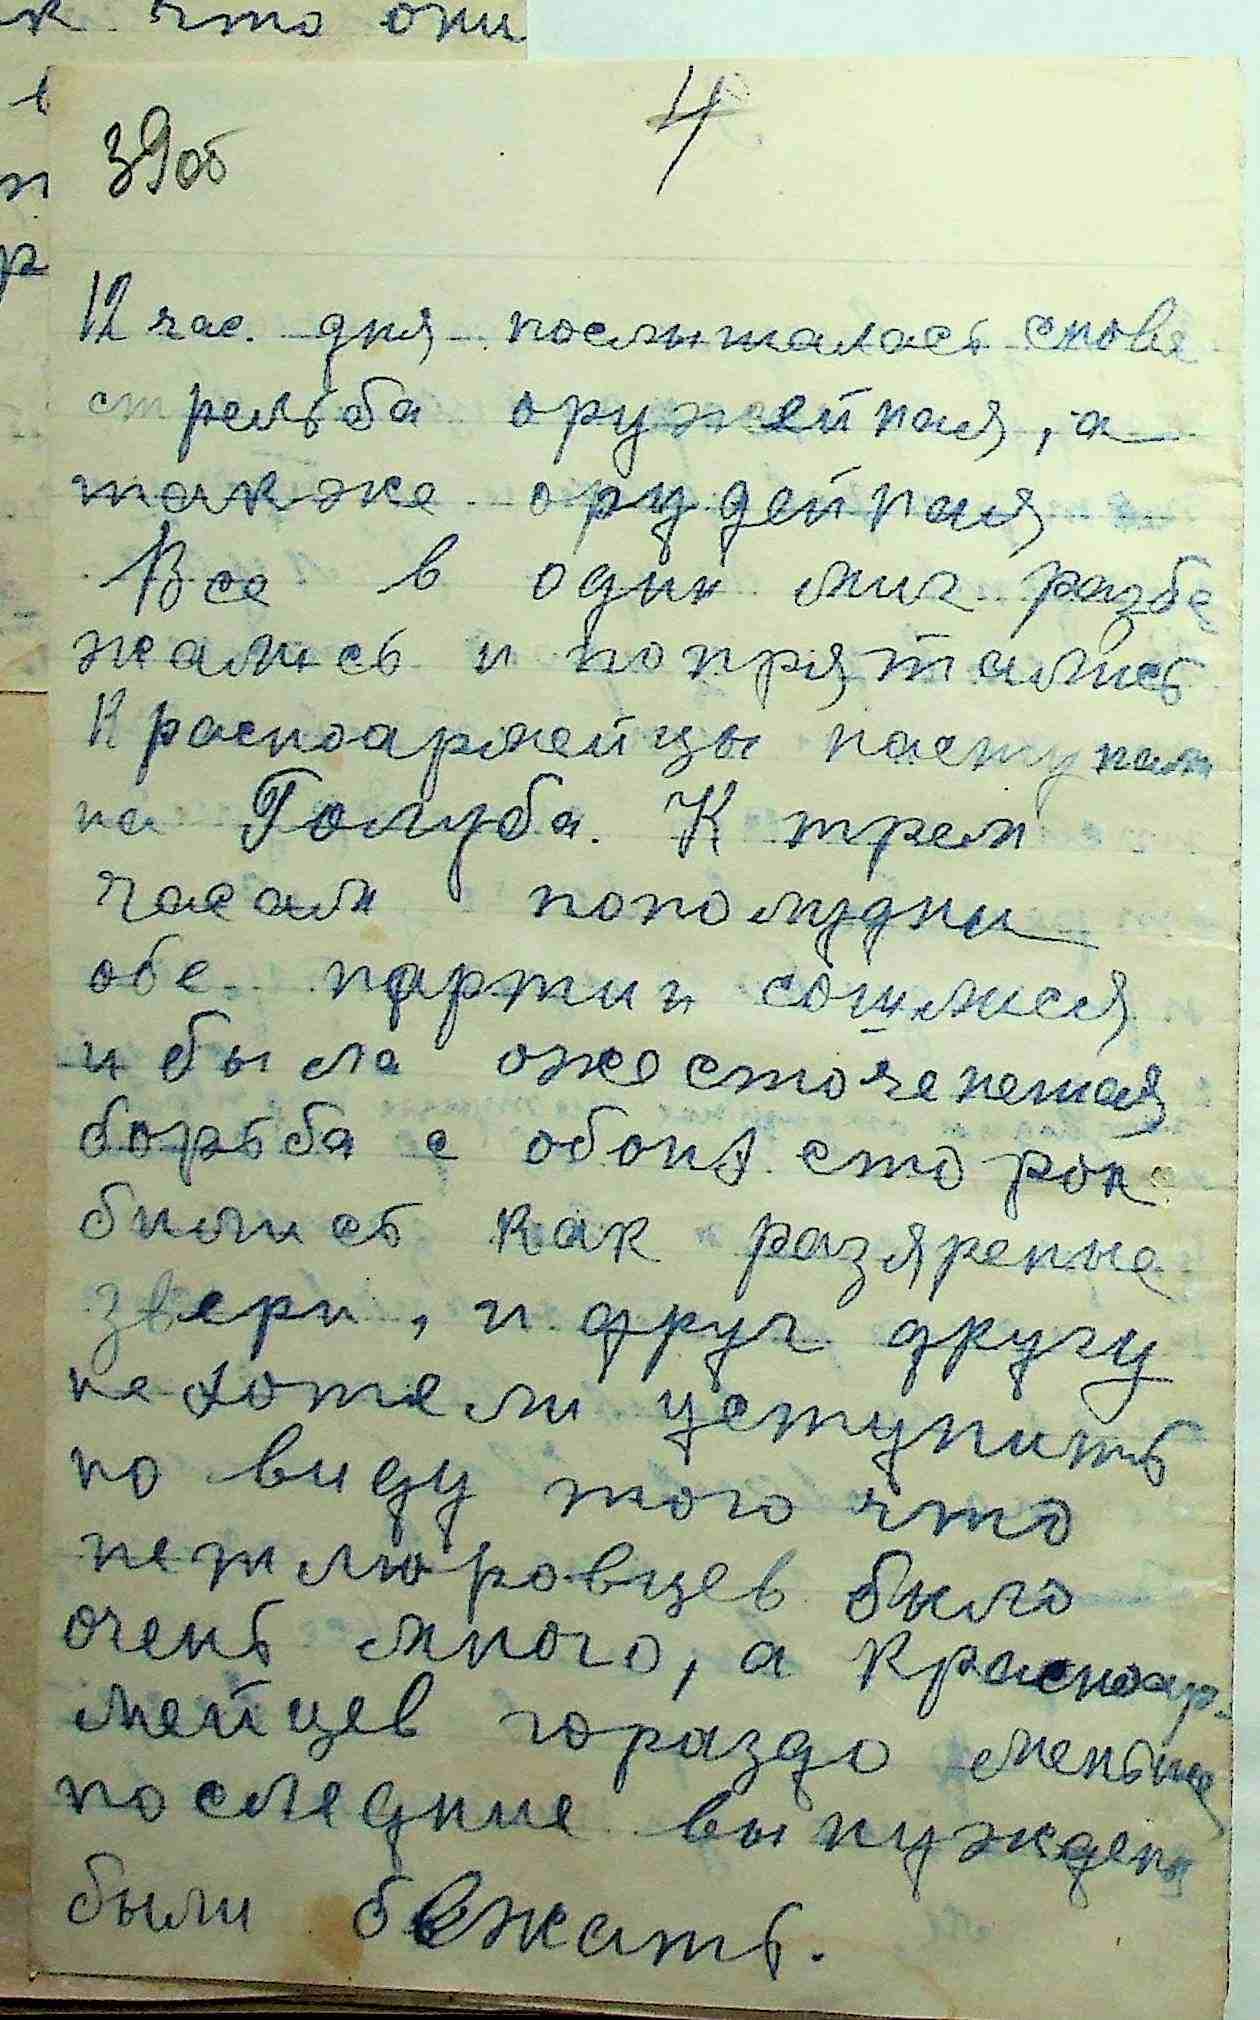 к что они
39об
4
12 час. дня послышалась снова
стрельба оружейная, а
также орудейная
Все в один миг разбе
жались и попрятались
Красноармейцы наступают
на Голуба. К трем
часам пополудни
обе партии сошлися
и была ожесточенная
борьба с обоих сторон
бились как разяреные
звери, и друг другу
не хотели уступить
но виду того что
петлюровцев было
очень много, а красноар-
мейцев гораздо меньше
последние вынуждены
были бежать.